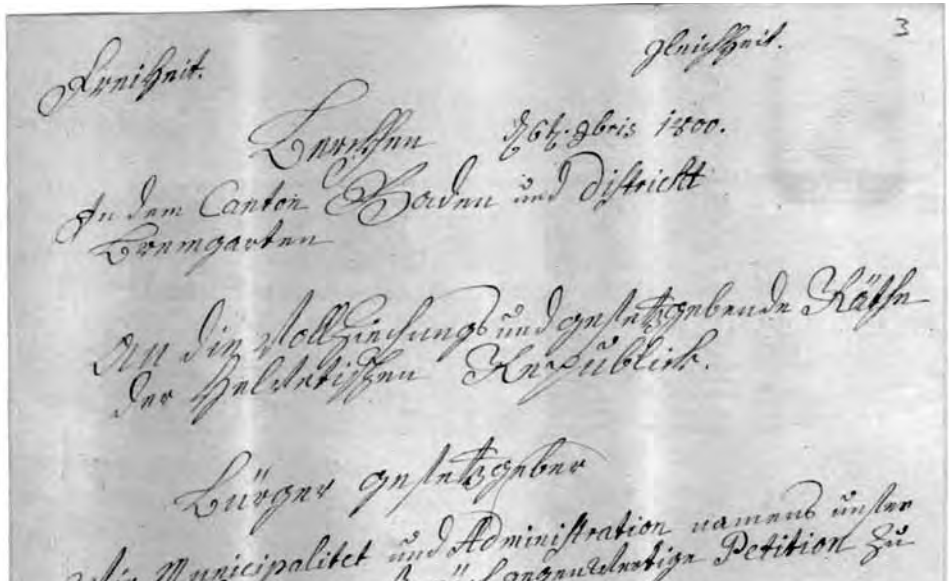 Freiheit.
Gleichheit.
3
Berchten d 6t. 9bris 1800.
In dem Canton Baden und districkt
Bremgarten
An die Vollziehungs und gesetzgebende Räthe
der Helvetischen Republick.
Bürger gesetzgeber
Wir Municipalitet und Administration namens unser
gegenwertige Petition zu